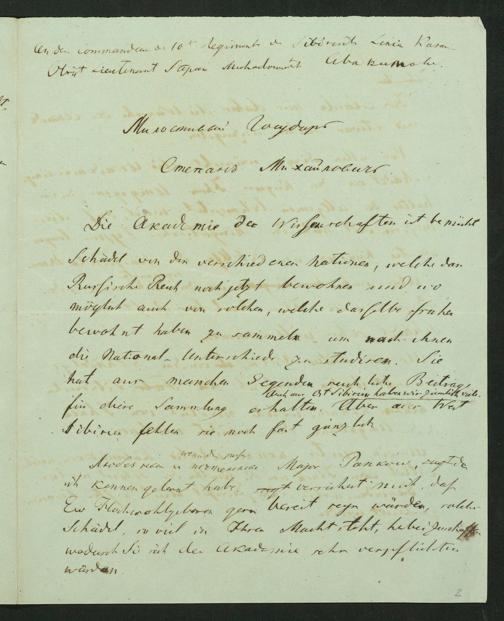 An den Commandeur des 10t Regiments der Sibirisch Linien Kasan
Obrist Lieutenant Stepan Michailowitsch Abakumow.
Милостивый Государь
Степанъ Михайловичъ
Die Akademie der Wissenschaften ist bemüht
Schädel von den verschiedenen Nationen, welche das
Russische Reich noch jetzt bewohnen und wo
möglich auch von solchen, welche dasselbe früher
bewohnt haben zu sammeln um nach ihnen
die National-Unterschiede zu studiren. Sie
hat aus manchen Gegenden reichliche Beiträge
für diese Sammlung erhalten. Auch aus Ost Sibirien haben wir ziemlich viele. Aber aus West
Sibirien fehlen sie noch fast gänzlich.
Major
ich kennen gelernt habe, versichert mich, daß
Ew Hochwohlgeboren gern bereit seyn würden, solche
Schädel, so viel in Ihrer Macht steht, herbeizuschaffen
wodurch Sie sich der Akademie sehr verpflichten
würden.
2